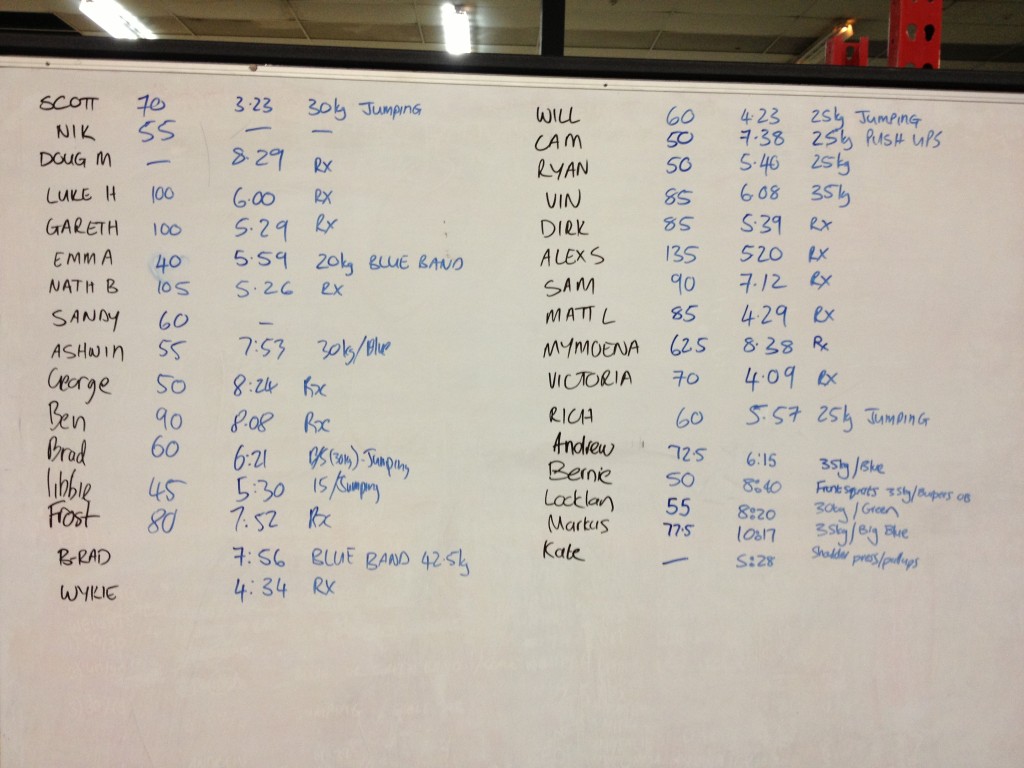 SCOTT 70 3.23 30kg Jumping
NIK 55 — —
DOUG M — 8.29 Rx
LUKE H 100 6.00 Rx
GARETH 100 5.29 Rx
EMMA 40 5.59 20kg BLUE BAND
NATH B 105 5.26 Rx
SANDY 60 —
ASHWIN 55 7:53 30kg/Blue
George 50 8:24 Rx
Ben 90 8.08 Rx
Brad 60 6:21 (30kg)-Jumping
libbie 45 5:30 15/Jumping
Frost 80 7:52 Rx
BRAD 7:56 BLUE BAND 42.5kg
WYKIE 4:34 RX
WILL 60 4.23 25kg JUMPING
CAM 50 7.38 25kg PUSH UPS
RYAN 50 5.40 25kg
VIN 85 6.08 35kg
DIRK 85 5.39 Rx
ALEX S 135 520 Rx
SAM 90 7.12 Rx
MATT L 85 4.29 Rx
MYMOENA 62.5 8.38 Rx
VICTORIA 70 4.09 Rx
RICH 60 5.57 25kg JUMPING
Andrew 72.5 6:15 35kg/Blue
Bernie 50 8:40 Front squats 35kg/Burpees OB
Locklan 55 8:20 30kg/Green
Markus 77.5 10:17 35kg/Big Blue
Kate — 5:28 Sholder press/pullups